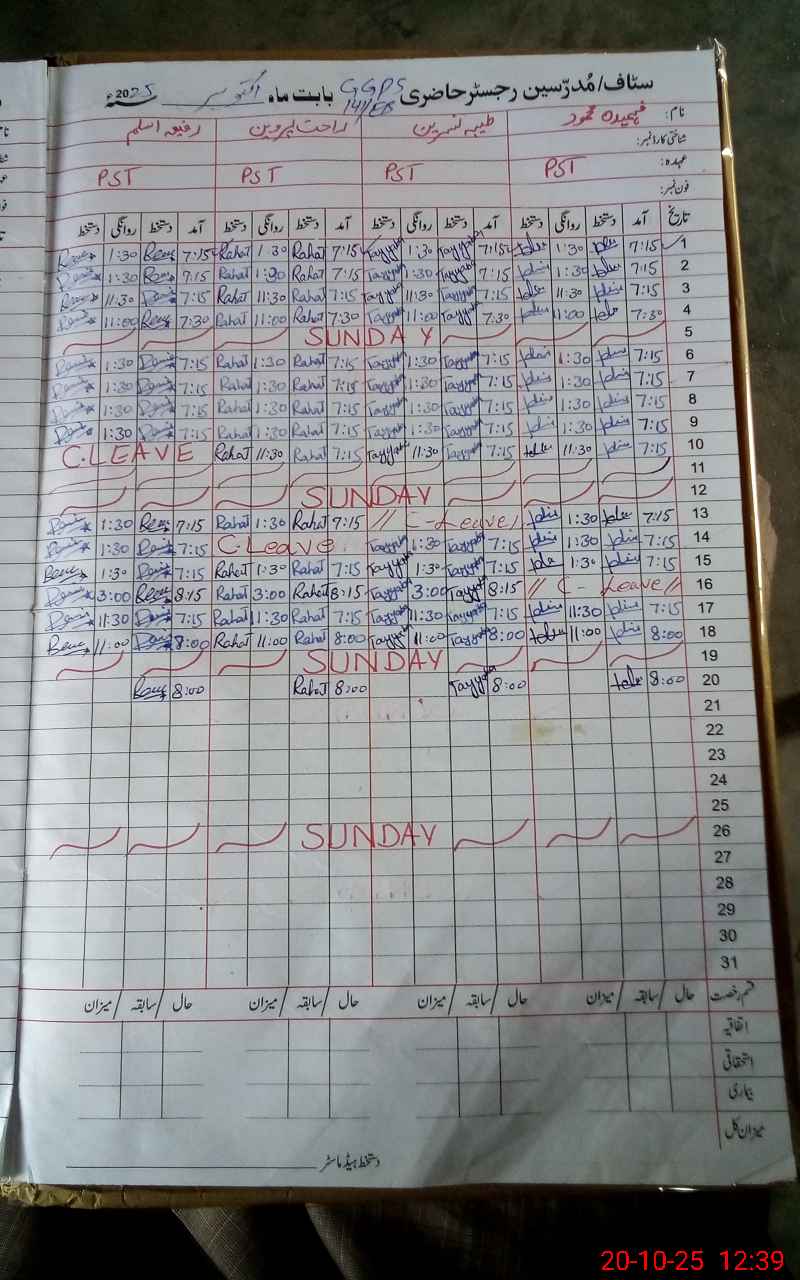 سٹاف/مُدرّسین رجسٹر حاضری GGPS 141/EB بابت ماہ اکتوبر سنہ 2025ء
نام: فہمیدہ محمود طیبہ نسرین راحت پروین رفیعہ اسلم
شناختی کارڈ نمبر:
عہدہ: PST PST PST PST
فون نمبر:
تاریخ آمد دستخط روانگی دستخط آمد دستخط روانگی دستخط آمد دستخط روانگی دستخط آمد دستخط روانگی دستخط
1:30 7:15 Rahat 1:30 Rahat 7:15 Tayyaba 1:30 Tayyaba 7:15 1:30 7:15 1
1:30 7:15 Rahat 1:30 Rahat 7:15 Tayyaba 1:30 Tayyaba 7:15 1:30 7:15 2
11:30 7:15 Rahat 11:30 Rahat 7:15 Tayyaba 11:30 Tayyaba 7:15 11:30 7:15 3
11:00 7:30 Rahat 11:00 Rahat 7:30 Tayyaba 11:00 Tayyaba 7:30 11:00 7:30 4
SUNDAY 5
1:30 7:15 Rahat 1:30 Rahat 7:15 Tayyaba 1:30 Tayyaba 7:15 1:30 7:15 6
1:30 7:15 Rahat 1:30 Rahat 7:15 Tayyaba 1:30 Tayyaba 7:15 1:30 7:15 7
1:30 7:15 Rahat 1:30 Rahat 7:15 Tayyaba 1:30 Tayyaba 7:15 1:30 7:15 8
1:30 7:15 Rahat 1:30 Rahat 7:15 Tayyaba 1:30 Tayyaba 7:15 1:30 7:15 9
C.LEAVE Rahat 11:30 Rahat 7:15 Tayyaba 11:30 Tayyaba 7:15 11:30 7:15 10
11
SUNDAY 12
1:30 7:15 Rahat 1:30 Rahat 7:15 // C-Leave / 1:30 7:15 13
1:30 7:15 C.Leave. Tayyaba 1:30 Tayyaba 7:15 1:30 7:15 14
1:30 7:15 Rahat 1:30 Rahat 7:15 Tayyaba 1:30 Tayyaba 7:15 1:30 7:15 15
3:00 8:15 Rahat 3:00 Rahat 8:15 Tayyaba 3:00 Tayyaba 8:15 // C - Leave // 16
11:30 7:15 Rahat 11:30 Rahat 7:15 Tayyaba 11:30 Tayyaba 7:15 11:30 7:15 17
11:00 8:00 Rahat 11:00 Rahat 8:00 Tayyaba 11:00 Tayyaba 8:00 11:00 8:00 18
SUNDAY 19
8:00 Rahat 8:00 Tayyaba 8:00 8:00 20
21
22
23
24
25
SUNDAY 26
27
28
29
30
31
قسم رخصت حال / سابقہ / میزان حال / سابقہ / میزان حال / سابقہ / میزان حال / سابقہ / میزان
اتفاقیہ
استحقاقی
بیماری
میزان کل
دستخط ہیڈ ماسٹر
20-10-25 12:39